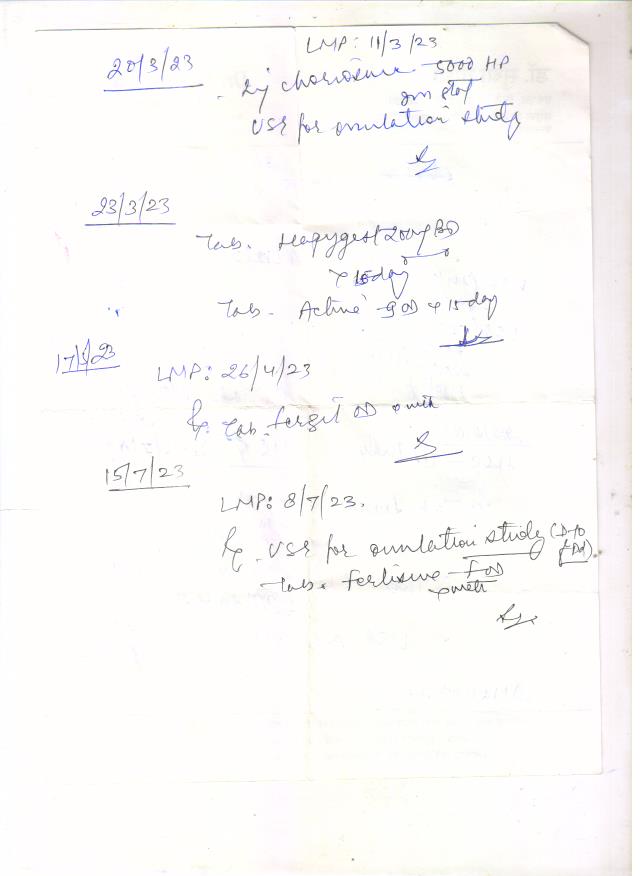 LMP: 11/3/23
20/3/23
Inj choriosure 5000 HP
im stat
USG for ovulation study
23/3/23
Tab. 200mg BD
x 15 day
Tab. Active OD x 15 day
17/5/23
LMP: 26/4/23
Rx Tab. OD
15/7/23
LMP: 8/7/23.
Rx. USG for ovulation study (D-10
Tab. Fertisure - F OD